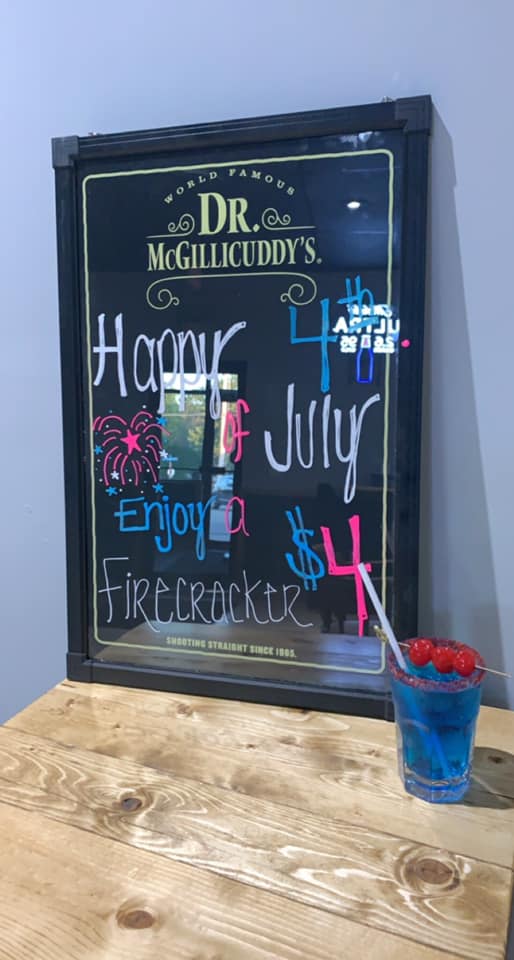 WORLD FAMOUS
DR.
McGILLICUDDY'S.
Happy 4th
of July
Enjoy a
Firecracker $4
SHOOTING STRAIGHT SINCE 1865.